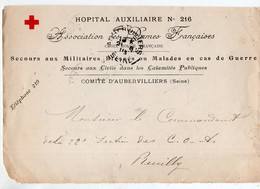 HOPITAL AUXILIAIRE N° 216
Association des Dames Françaises
CROIX ROUGE FRANÇAISE
Secours aux Militaires Blessés ou Malades en cas de Guerre
Secours aux Civils dans les Calamités Publiques
COMITÉ D'AUBERVILLIERS (Seine)
Téléphone 219
Monsieur le Commandant
de la 22e Section des C.O.A.
Reuilly